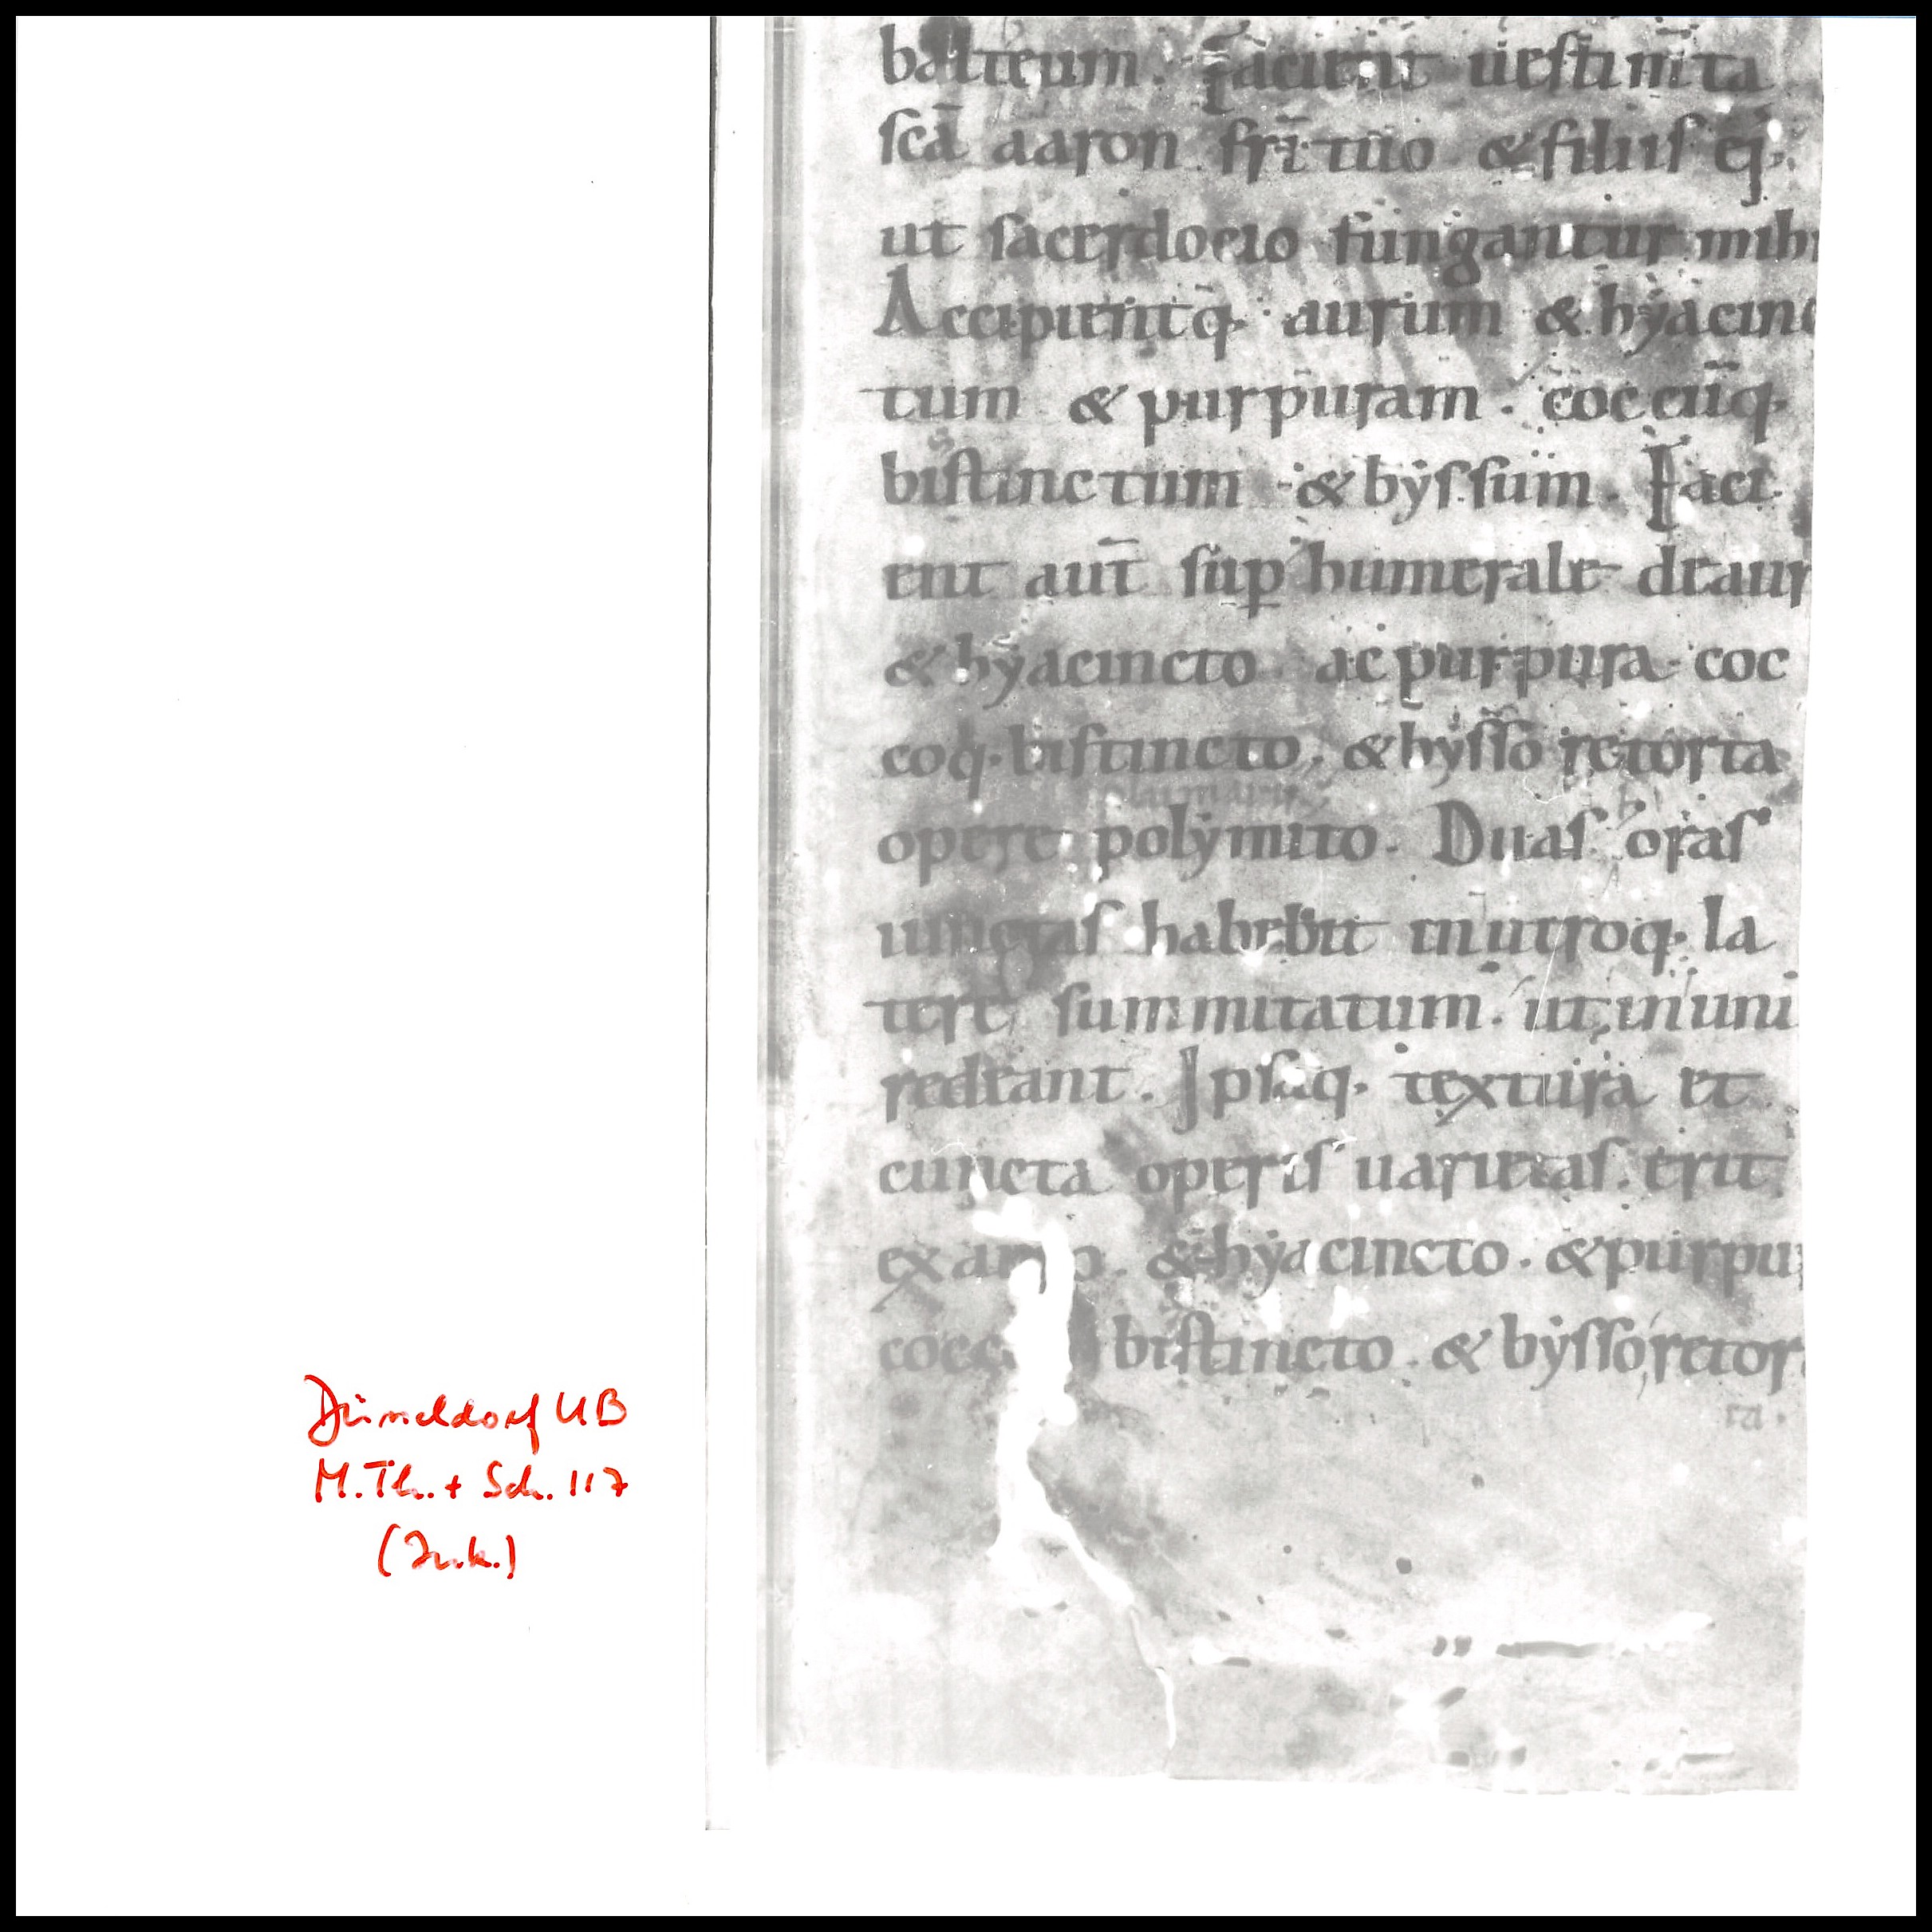 balteum. Facient uestim̄ta
sc̄a aaron fr̄i tuo & filiis ej;
ut sacerdocio fungantur mihi
Accipientq; aurum & hyacinc
tum & purpuram. coccūq;
bistinctum & byssum. Faci
ent aut̄ sup humerale deaur
& hyacincto ac purpura. coc
coq; bistincto. & bysso retorta
opere polymito. Duas oras
iunctas habebit inutroq; la
tere summitatum. ut inunū
redeant. Ipsaq; textura et
cuncta operis uarietas. erit
ex & hyacincto. & purpur
bistincto. & bysso retor
ta.
Düsseldorf UB
M. Th. + Sch. 117
(Ink.)